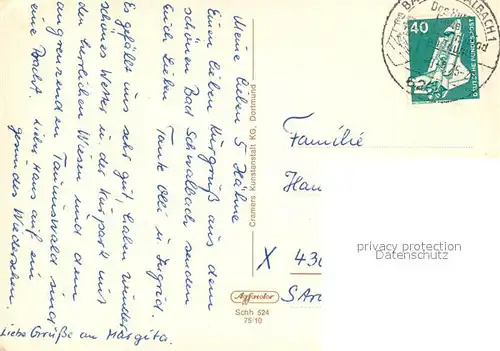 Meine lieben 5 Hähne
Einen lieben Kurgruß aus dem
schönen Bad Schwalbach senden
Euch Lieben Tante Olli u. Ingrid.
Es gefällt uns sehr gut, haben wunder
schönes Wetter in der Kurpark mit
den herrlichen Wiesen und dem
angrenzenden Taunuswald sind
eine Pracht. Liebe Hans auf ein
gesundes Wiedersehen.
Liebe Grüße an Margita.
Cramers Kunstanstalt KG, Dortmund
Agfacolor
Schh 524
75/10
BAD SCHWALBACH 1
40
DEUTSCHE BUNDESPOST
Familie
Han
X 430
privacy protection
Datenschutz